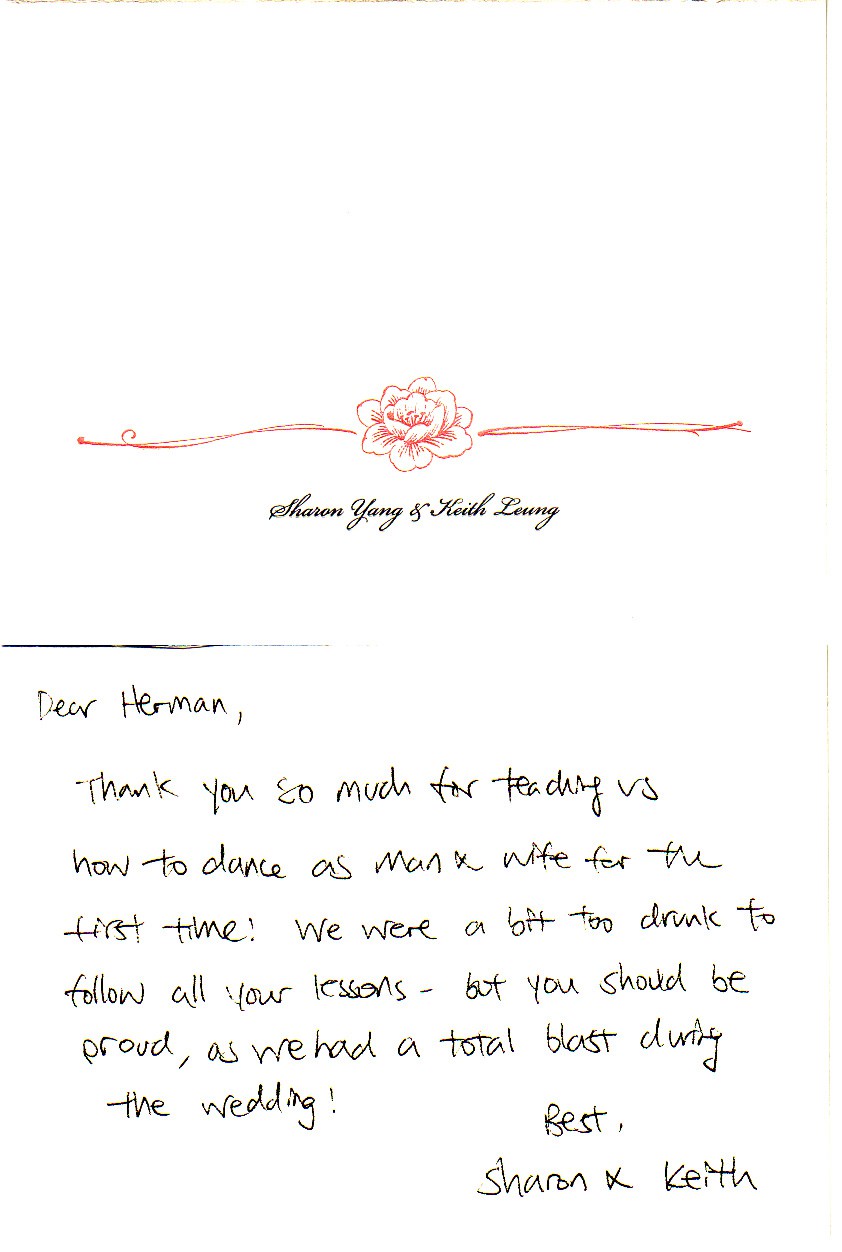 Sharon Yang & Keith Leung
Dear Herman,
Thank you so much for teaching us
how to dance as man & wife for the
first time! We were a bit too drunk to
follow all your lessons - but you should be
proud, as we had a total blast during
the wedding!
Best,
Sharon & Keith